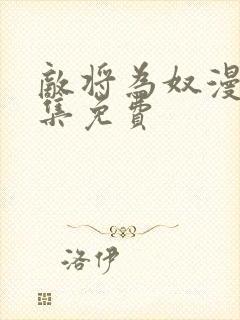 敵将為奴漫
集免費
洛伊